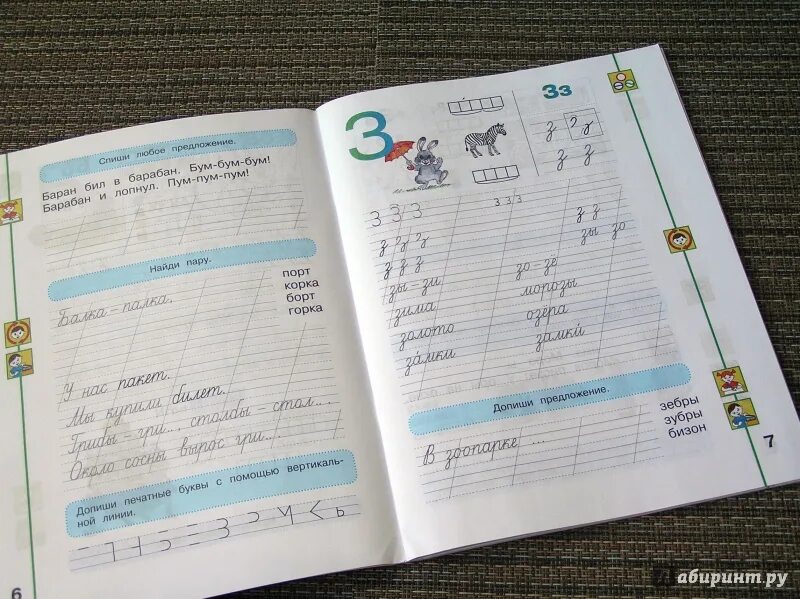 Спиши любое предложение.
Баран бил в барабан. Бум-бум-бум!
Барабан и лопнул. Пум-пум-пум!
Найди пару.
Балка - палка,
порт
корка
борт
горка
У нас пакет.
Мы купили билет.
Грибы - гри..., столбы стол....
Около сосны вырос гри...
Допиши печатные буквы с помощью вертикаль-
ной линии.
6
З
Зз
З З З
з з з
з з з
з з
з з з
зы зо
зы - зи
зо - зе
зима
морозы
золото
озёра
за́мки
замки́
Допиши предложение.
В зоопарке ...
зебры
зубры
бизон
7
абиринт.ру